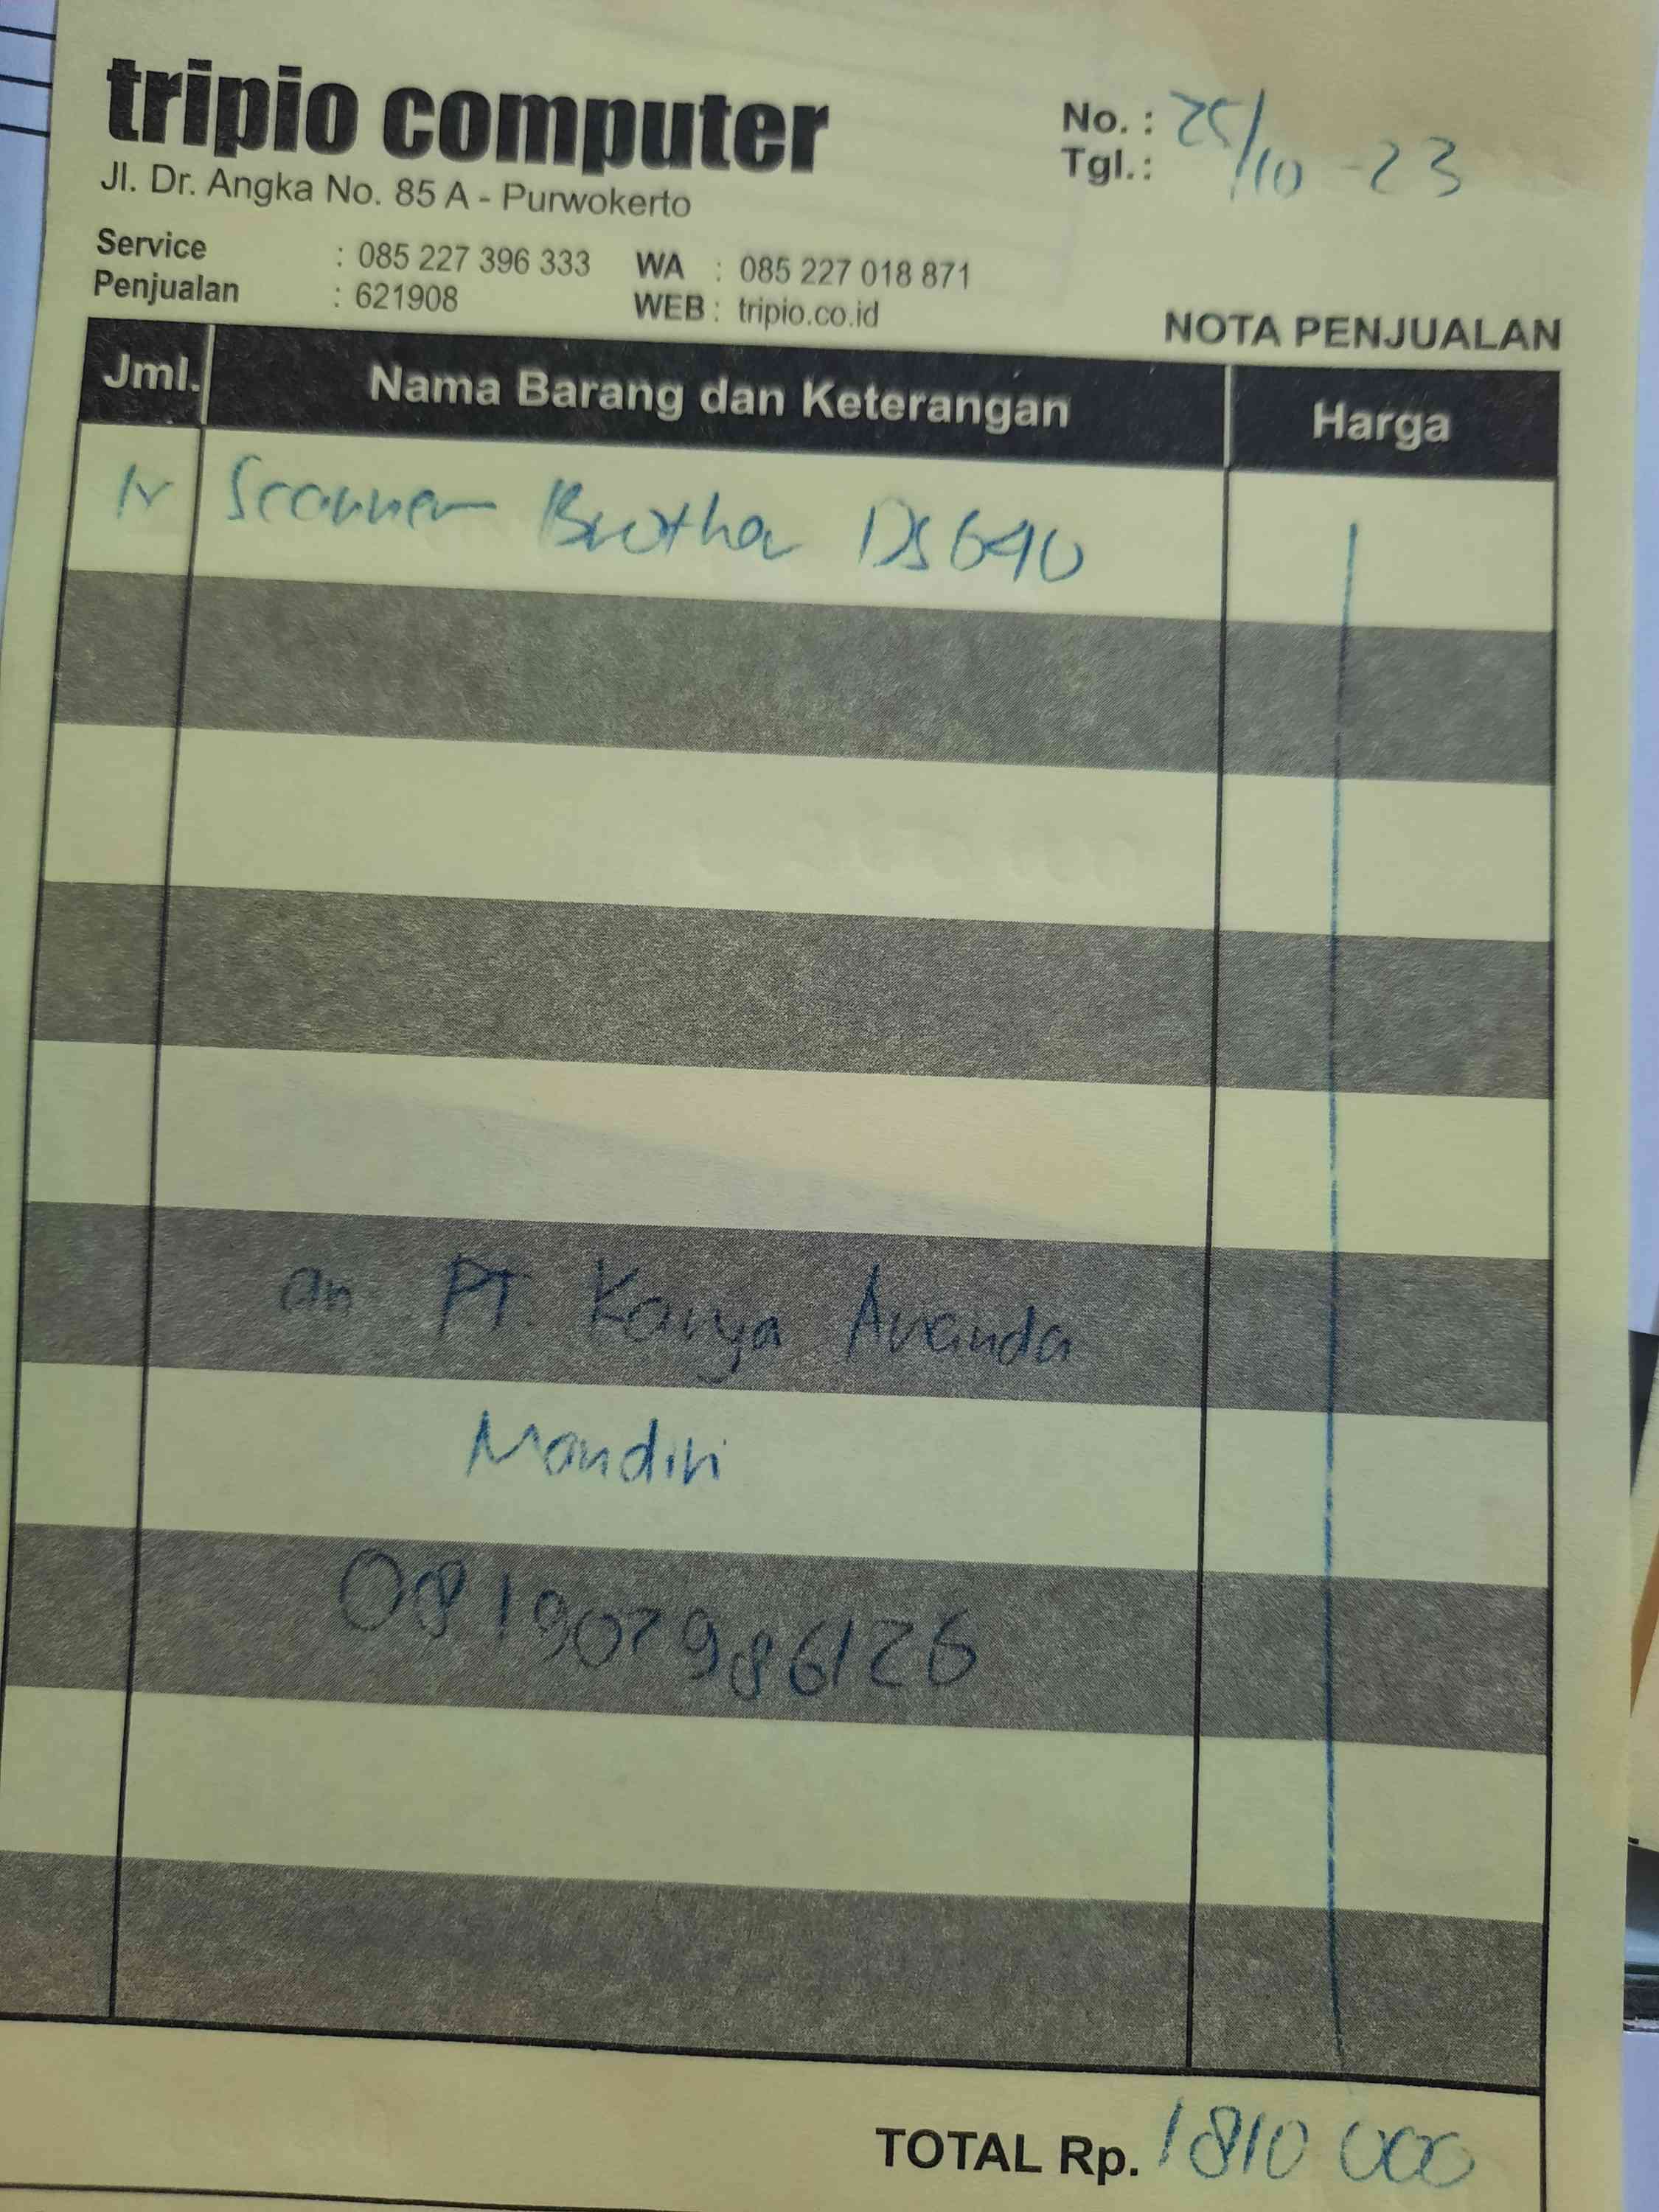 tripio computer
Jl. Dr. Angka No. 85 A - Purwokerto
Service : 085 227 396 333 WA : 085 227 018 871
Penjualan : 621908 WEB : tripio.co.id
No. :
Tgl. : 25/10 - 23
NOTA PENJUALAN
Jml. Nama Barang dan Keterangan Harga
1 Scanner Brother DS640
an PT. Karya Avanda
Mandiri
081907986126
TOTAL Rp. 1810 000